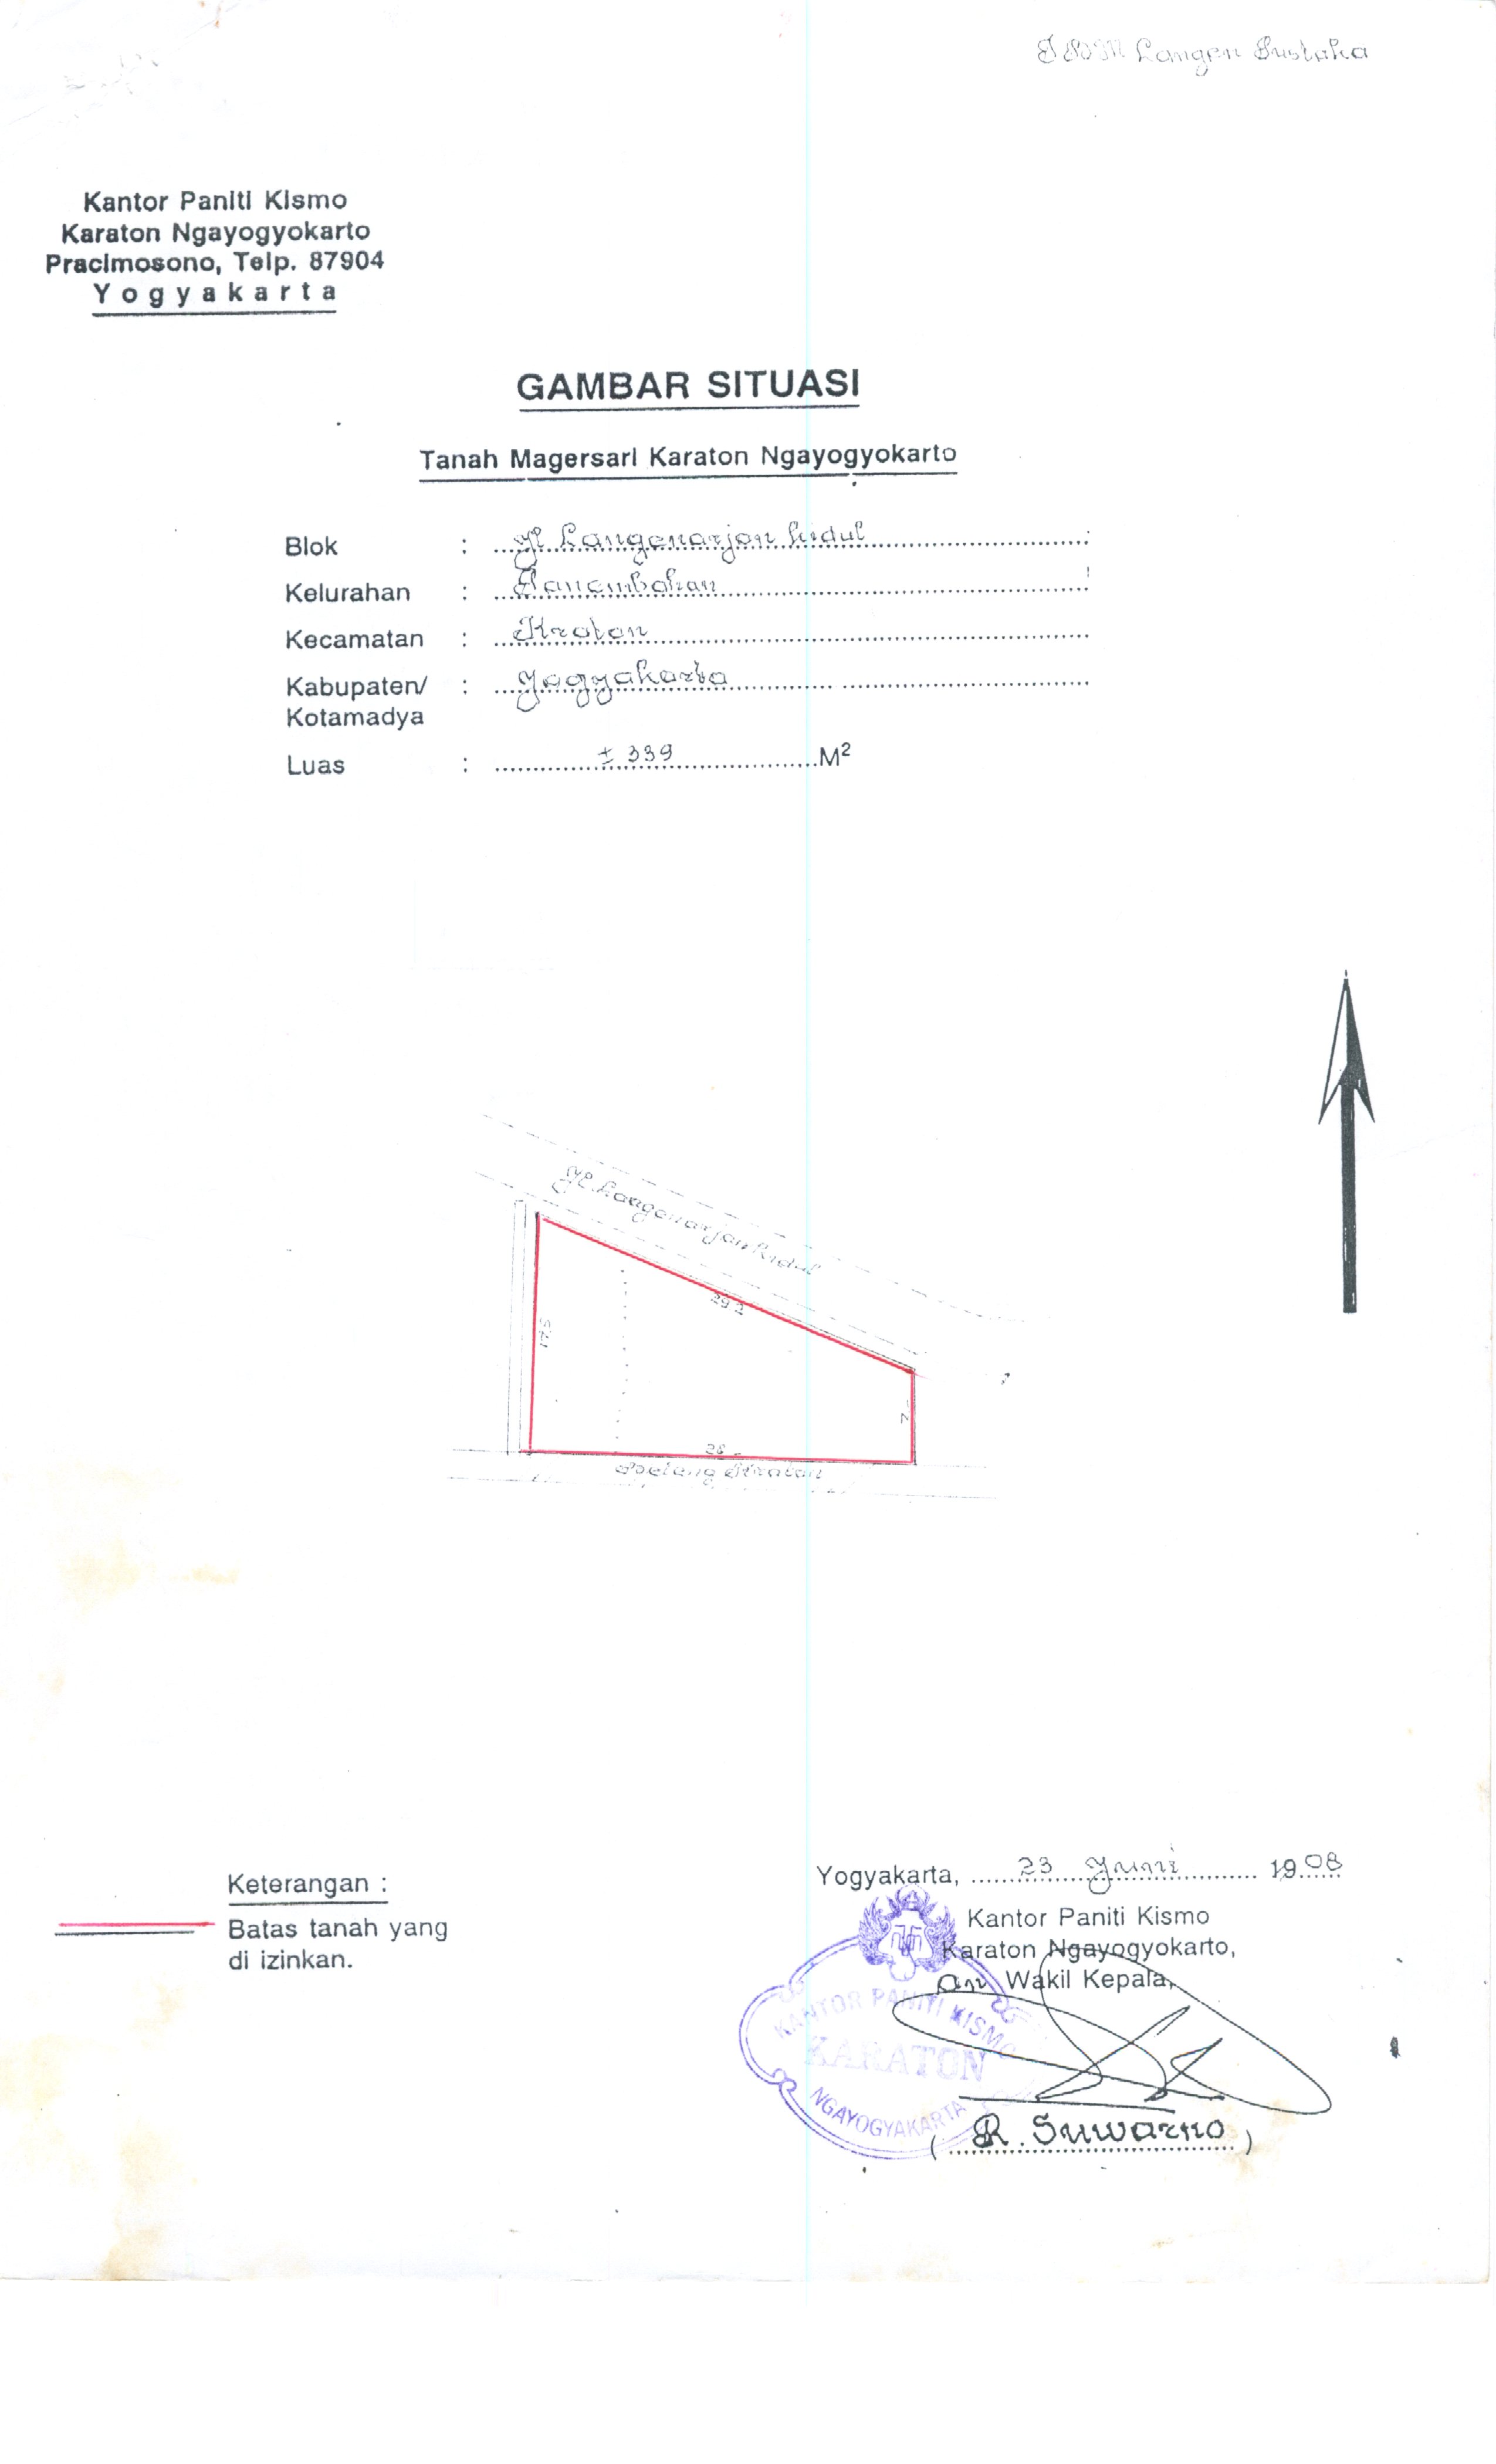 Langen Pustaka
Kantor Paniti Kismo
Karaton Ngayogyokarto
Pracimosono, Telp. 87904
Yogyakarta
GAMBAR SITUASI
Tanah Magersari Karaton Ngayogyokarto
Blok : Jl Langenarjan Kidul
Kelurahan : Panembahan
Kecamatan : Kraton
Kabupaten/ : Yogyakarta
Kotamadya
Luas : ± 339 M²
Jl. Langenarjan Kidul
29 2
17.5
7 -
28 -
Beteng Kraton
Keterangan :
Batas tanah yang
di izinkan.
Yogyakarta, 23 Juni 1998
Kantor Paniti Kismo
Karaton Ngayogyokarto,
an Wakil Kepala,
KANTOR PANITI KISMO
KARATON
NGAYOGYAKARTA
( R. Suwarno )